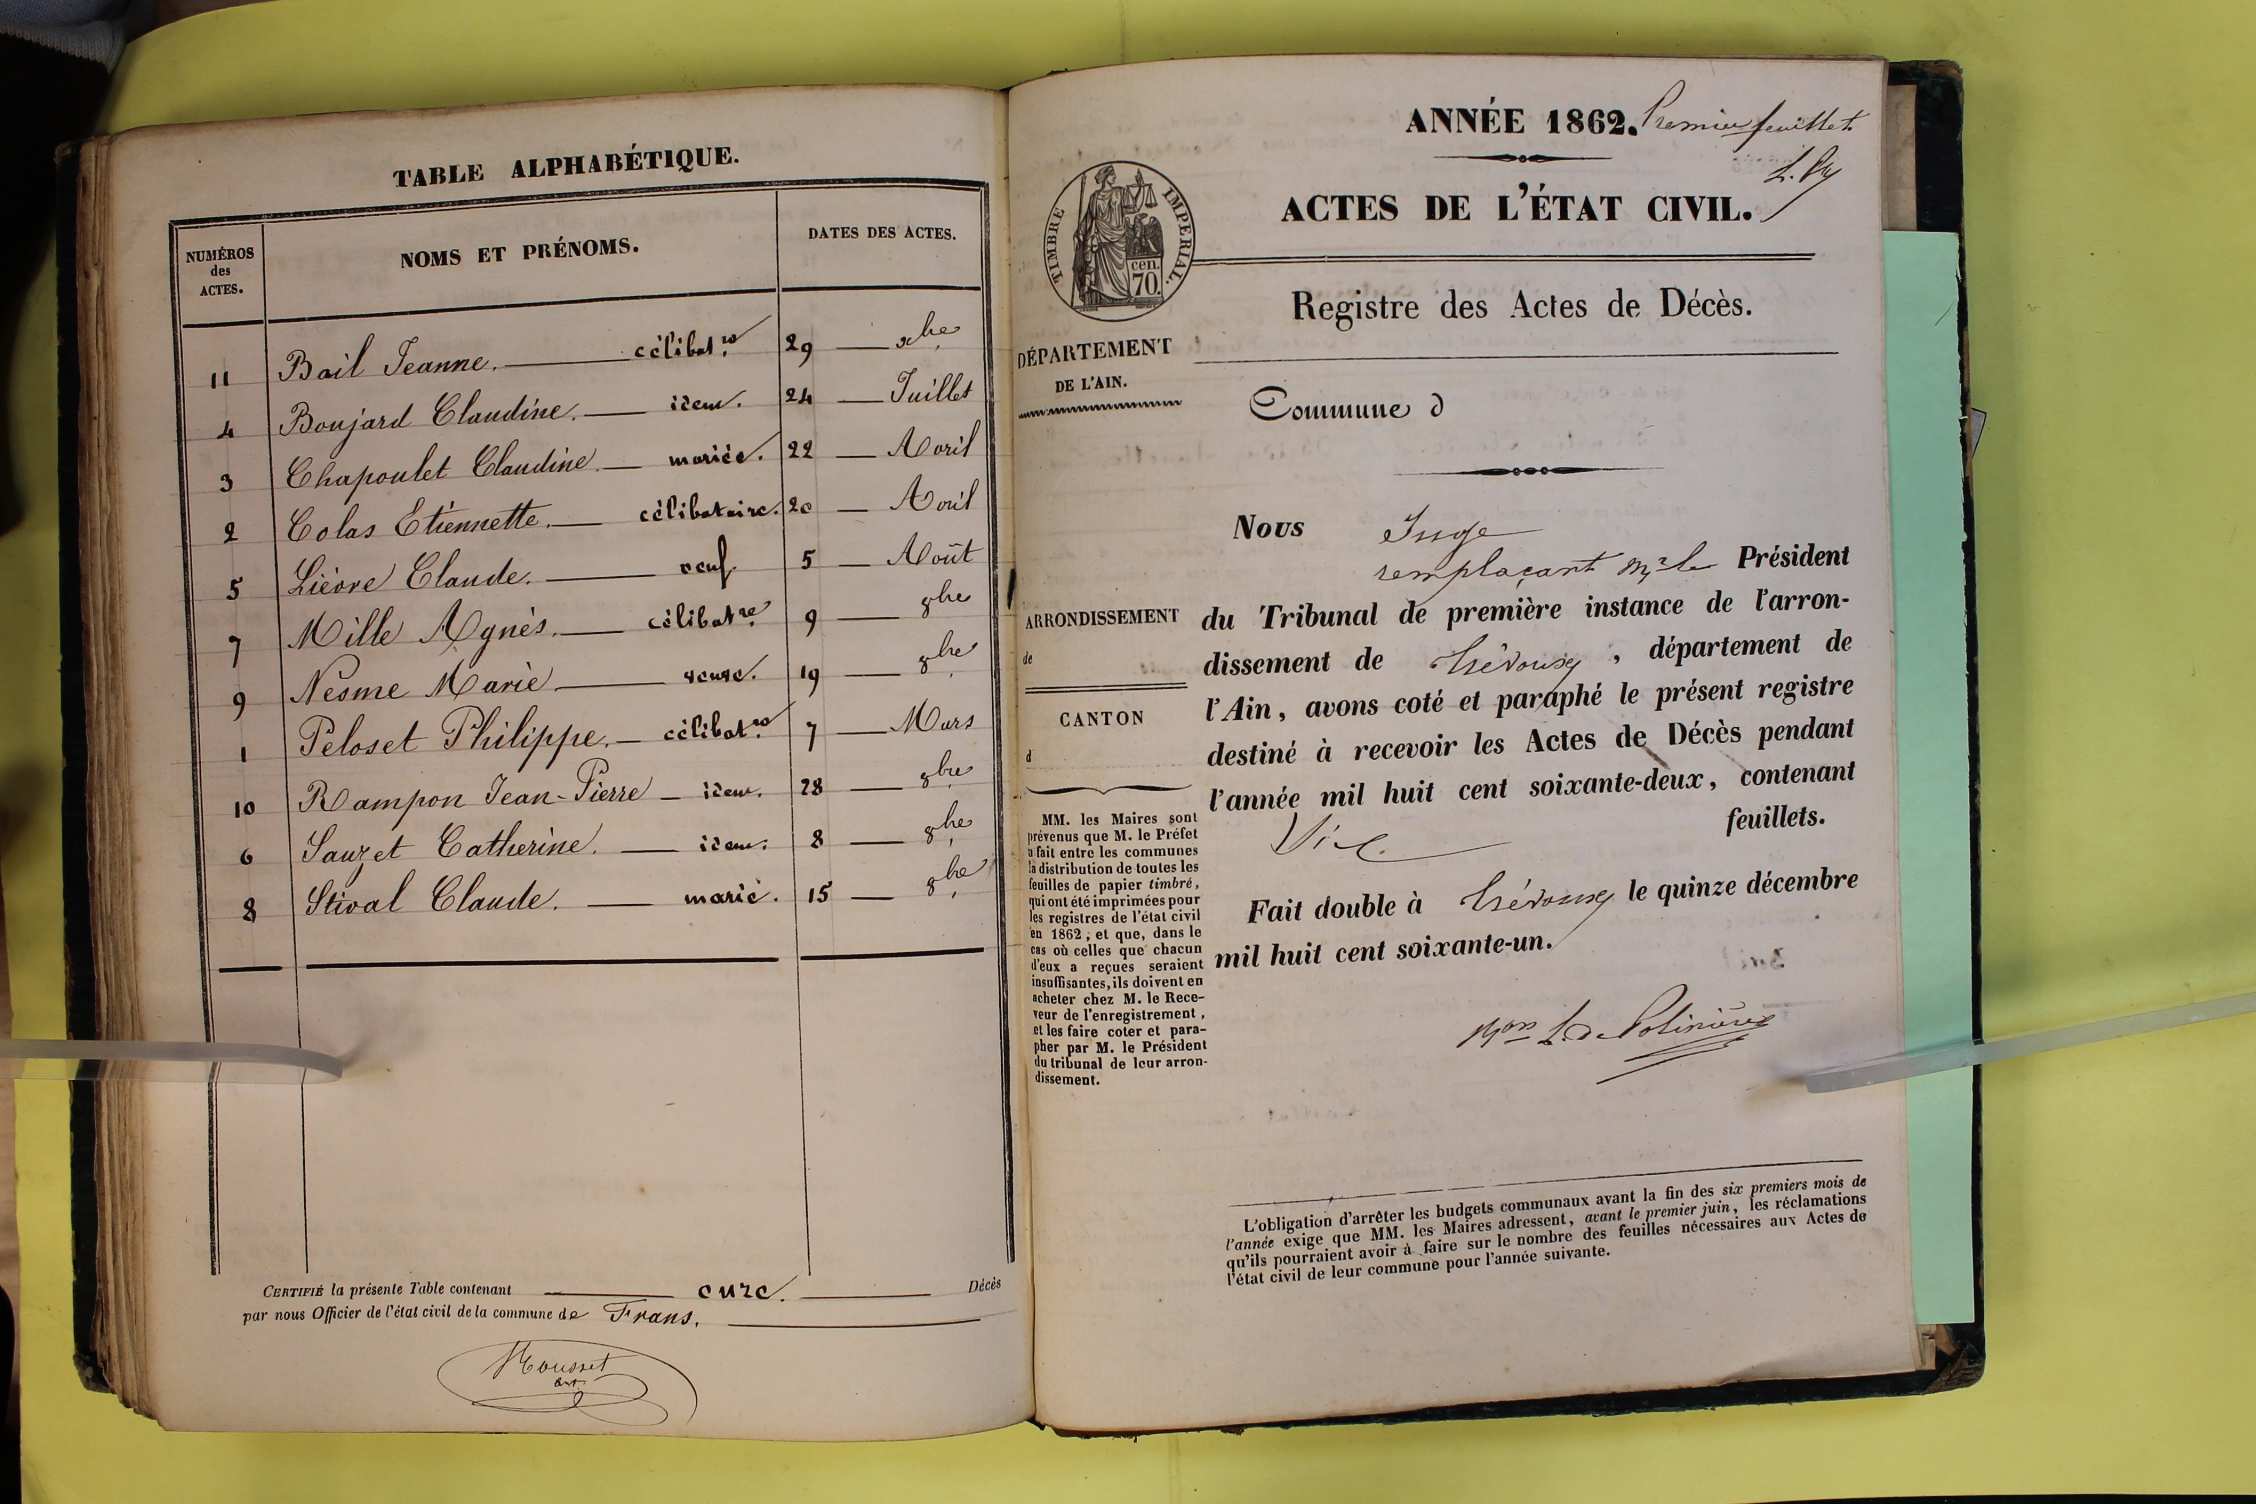 TABLE ALPHABÉTIQUE.
NUMÉROS
des
ACTES.
NOMS ET PRÉNOMS.
DATES DES ACTES.
11 Bail Jeanne. célibatre 29 xbre
4 Boujard Claudine. idem. 24 Juillet
3 Chapoulet Claudine mariée. 22 Avril
2 Colas Etiennette. célibataire. 20 Avril
5 Lièvre Claude. veuf 5 Août
7 Mille Agnès. célibatre 9 8bre
9 Nésme Marie veuve. 19 8bre
1 Péloset Philippe. célibatre 7 Mars
10 Rampon Jean-Pierre idem. 28 8bre
6 Sauzet Catherine. idem. 8 8bre
8 Stival Claude. marié. 15 8bre
CERTIFIÉ la présente Table contenant onze. Décès
par nous Officier de l'état civil de la commune de Frans.
Mousset
ANNÉE 1862. Premier feuillet.
ACTES DE L'ÉTAT CIVIL.
TIMBRE IMPERIAL.
cen.
70.
Registre des Actes de Décès.
DÉPARTEMENT
DE L'AIN.
Commune d
ARRONDISSEMENT
de
CANTON
d
MM. les Maires sont
prévenus que M. le Préfet
a fait entre les communes
la distribution de toutes les
feuilles de papier timbré,
qui ont été imprimées pour
les registres de l'état civil
en 1862; et que, dans le
cas où celles que chacun
d'eux a reçues seraient
insuffisantes, ils doivent en
acheter chez M. le Rece-
veur de l'enregistrement,
et les faire coter et para-
pher par M. le Président
du tribunal de leur arron-
dissement.
Nous Juge
remplaçant Mr le Président
du Tribunal de première instance de l'arron-
dissement de Trévoux, département de
l'Ain, avons coté et paraphé le présent registre
destiné à recevoir les Actes de Décès pendant
l'année mil huit cent soixante-deux, contenant
Six feuillets.
Fait double à Trévoux le quinze décembre
mil huit cent soixante-un.
L. de Polinière
L'obligation d'arrêter les budgets communaux avant la fin des six premiers mois de
l'année exige que MM. les Maires adressent, avant le premier juin, les réclamations
qu'ils pourraient avoir à faire sur le nombre des feuilles nécessaires aux Actes de
l'état civil de leur commune pour l'année suivante.